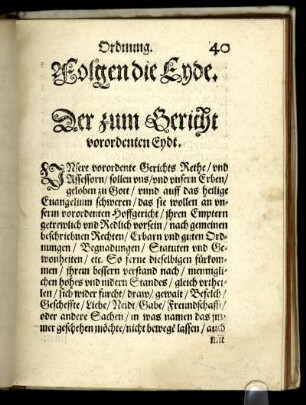 Ordnung. 40
Folgen die Eyde.
Der zum Gericht
vorordenten Eydt.
UNsere vorordente Gerichts Rethe / vnd
Assessorn / sollen vns / vnd vnsern Erben /
geloben zu Gott / vnnd auff das heilige
Euangelium schweren / das sie wollen an vn-
serm vorordenten Hoffgericht / jhren Emptern
getrewlich vnd Redlich vorsein / nach gemeinen
beschriebnen Rechten / Erbarn vnd guten Ord-
nungen / Begnadungen / Statuten vnd Ge-
wonheiten / etc. So ferne dieselbigen fürkom-
men / jhrem bessern verstand nach / mennigli-
chen hohes vnd nidern Standes / gleich vrthei-
len / sich wider furcht / draw / gewalt / Befelch /
Gescheffte / Liebe / Neidt / Gabe / Freundschafft /
oder andere Sachen / in was namen das jm-
mer geschehen möchte / nicht bewegē lassen / auch
mit